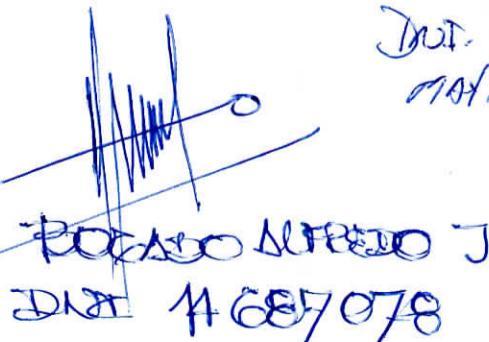 DNI.
MAY.
BOCADO ALFREDO J
DNI 11687078